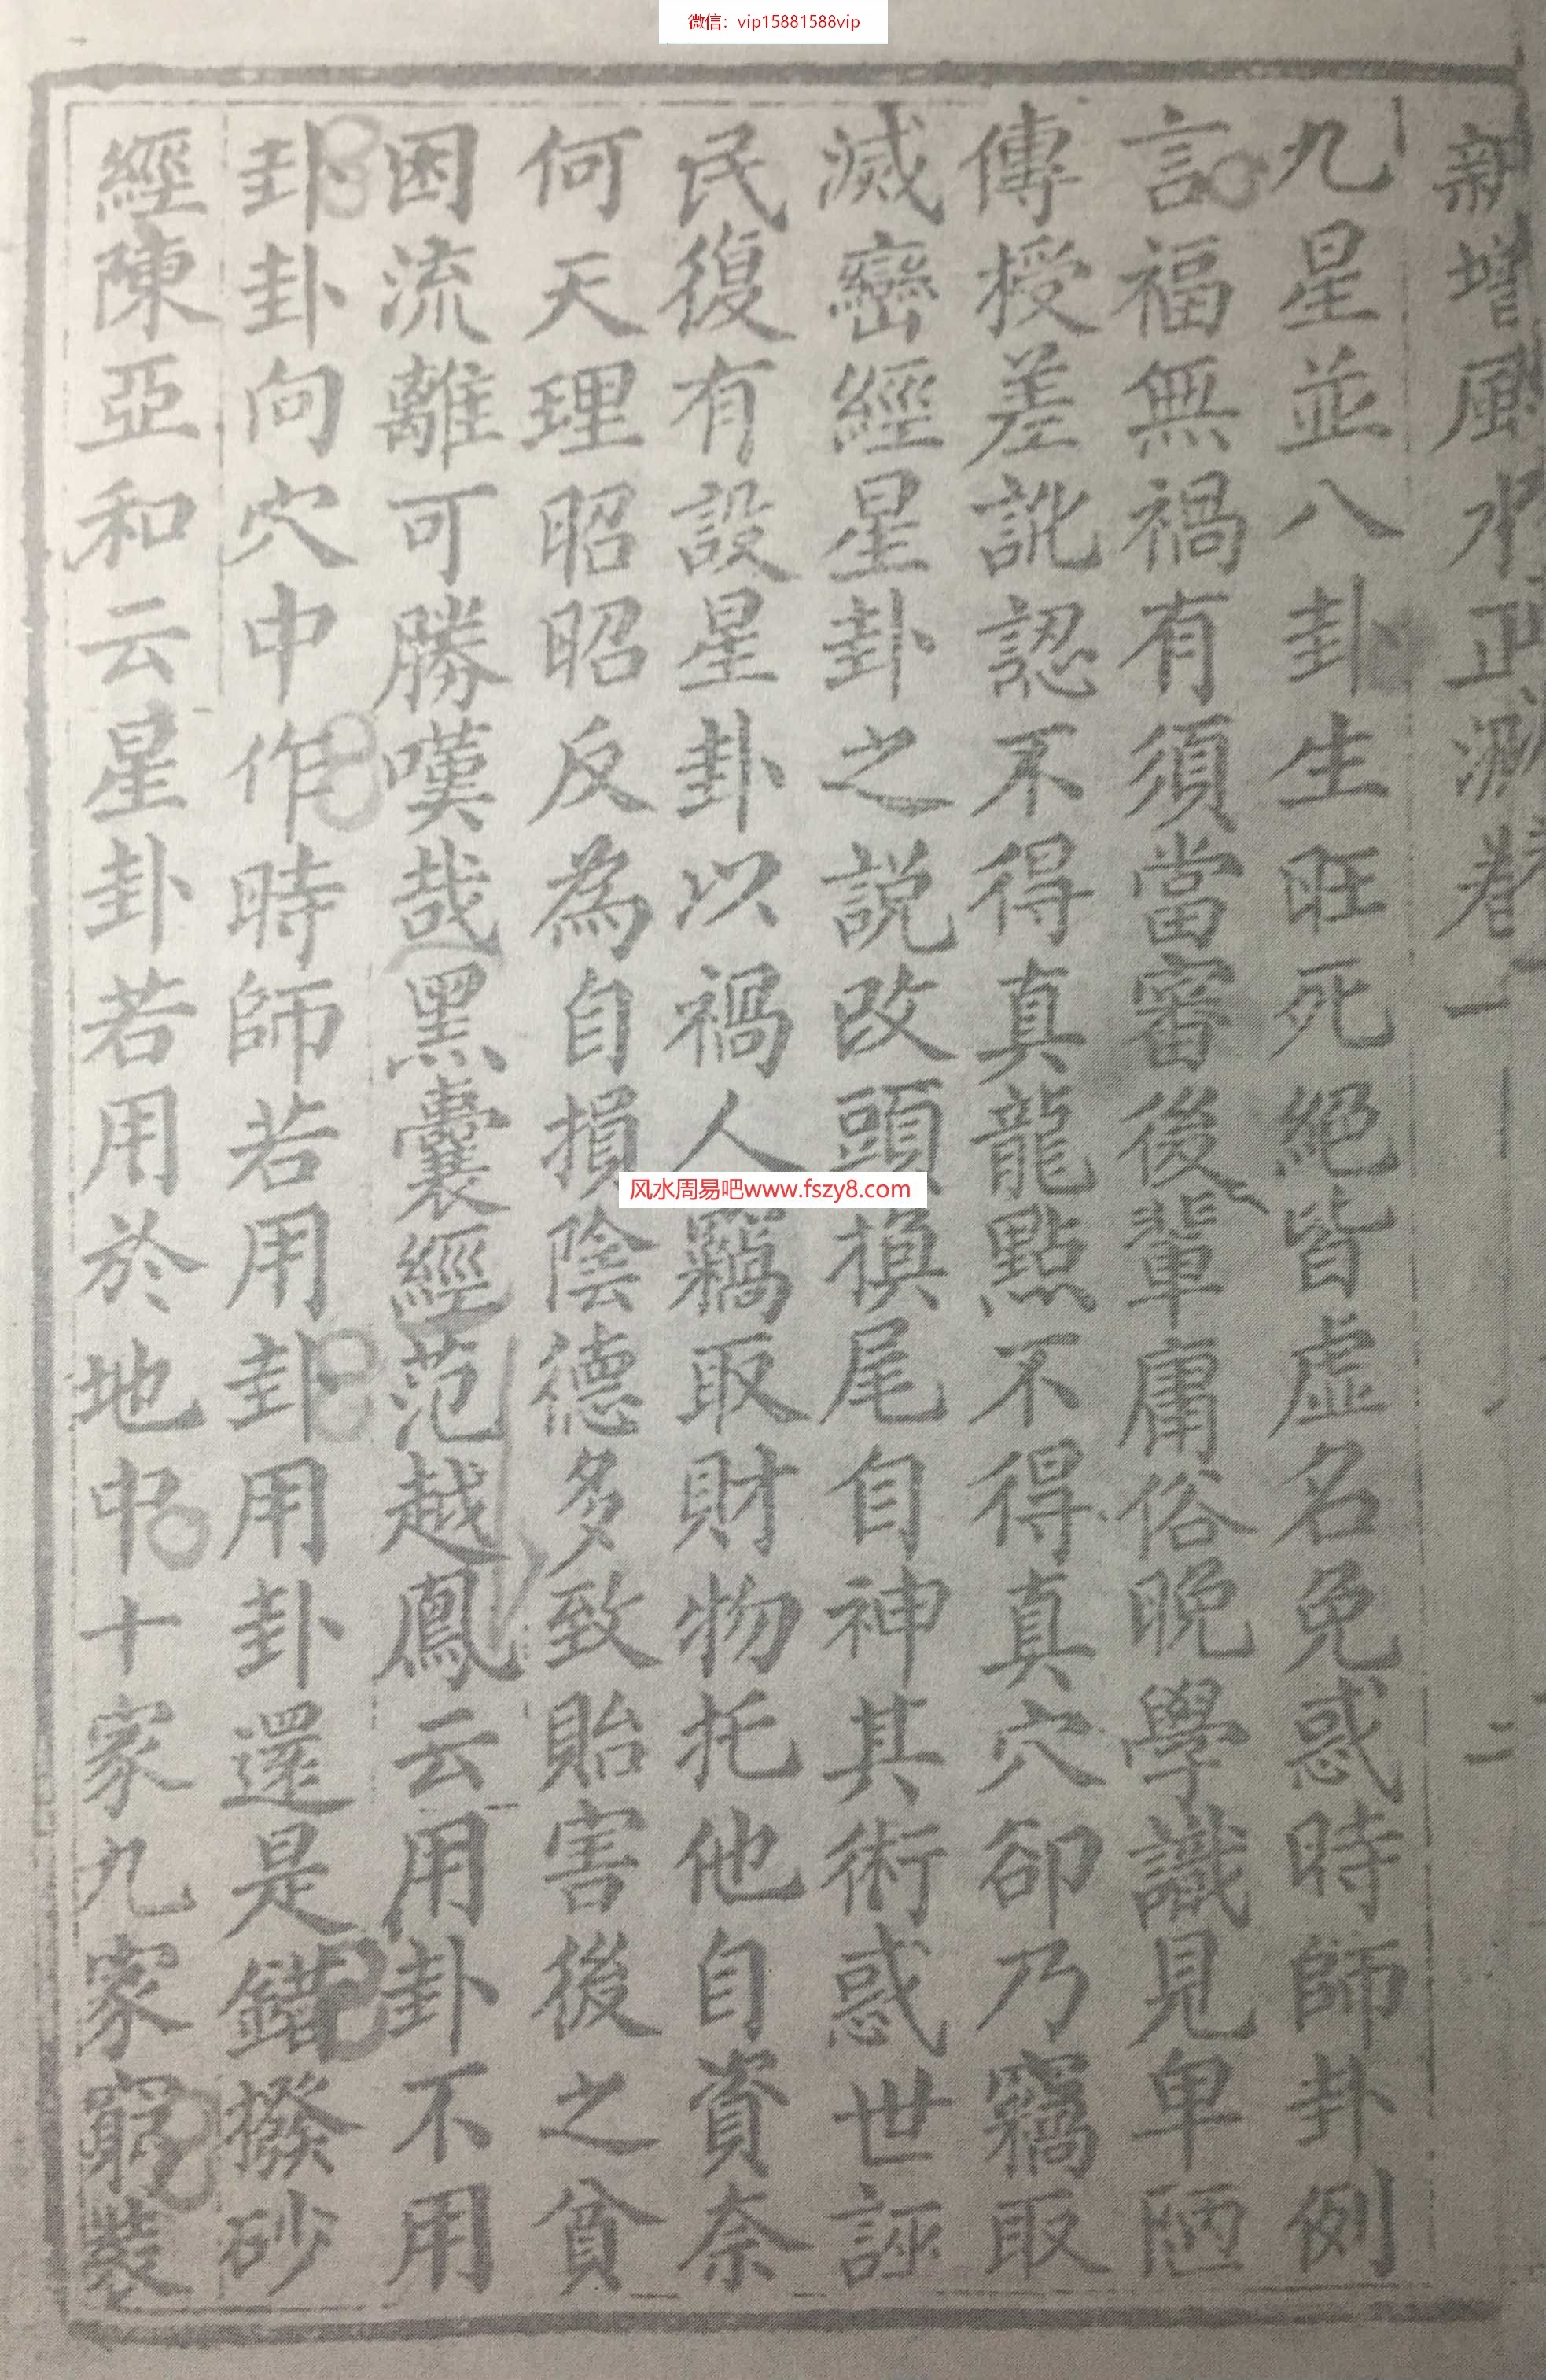 微信：vip15881588vip
新增風水正淵卷一
二
九星並八卦生旺死絕皆虛名免惑時師卦例
言福無禍有須當審後輩庸俗晚學識見卑陋
傳授差訛認不得真龍點不得真穴卻乃竊取
滅巒經星卦之説改頭換尾自神其術惑世誣
民復有設星卦以禍人竊取財物托他自資奈
何天理昭昭反為自損陰德多致貽害後之貧
困流離可勝嘆哉黑囊經范越鳳云用卦不用
卦卦向穴中作時師若用卦用卦還是錯撥砂
經陳亞和云星卦若用於地中十家九家窮裝
风水周易吧www.fszy8.com